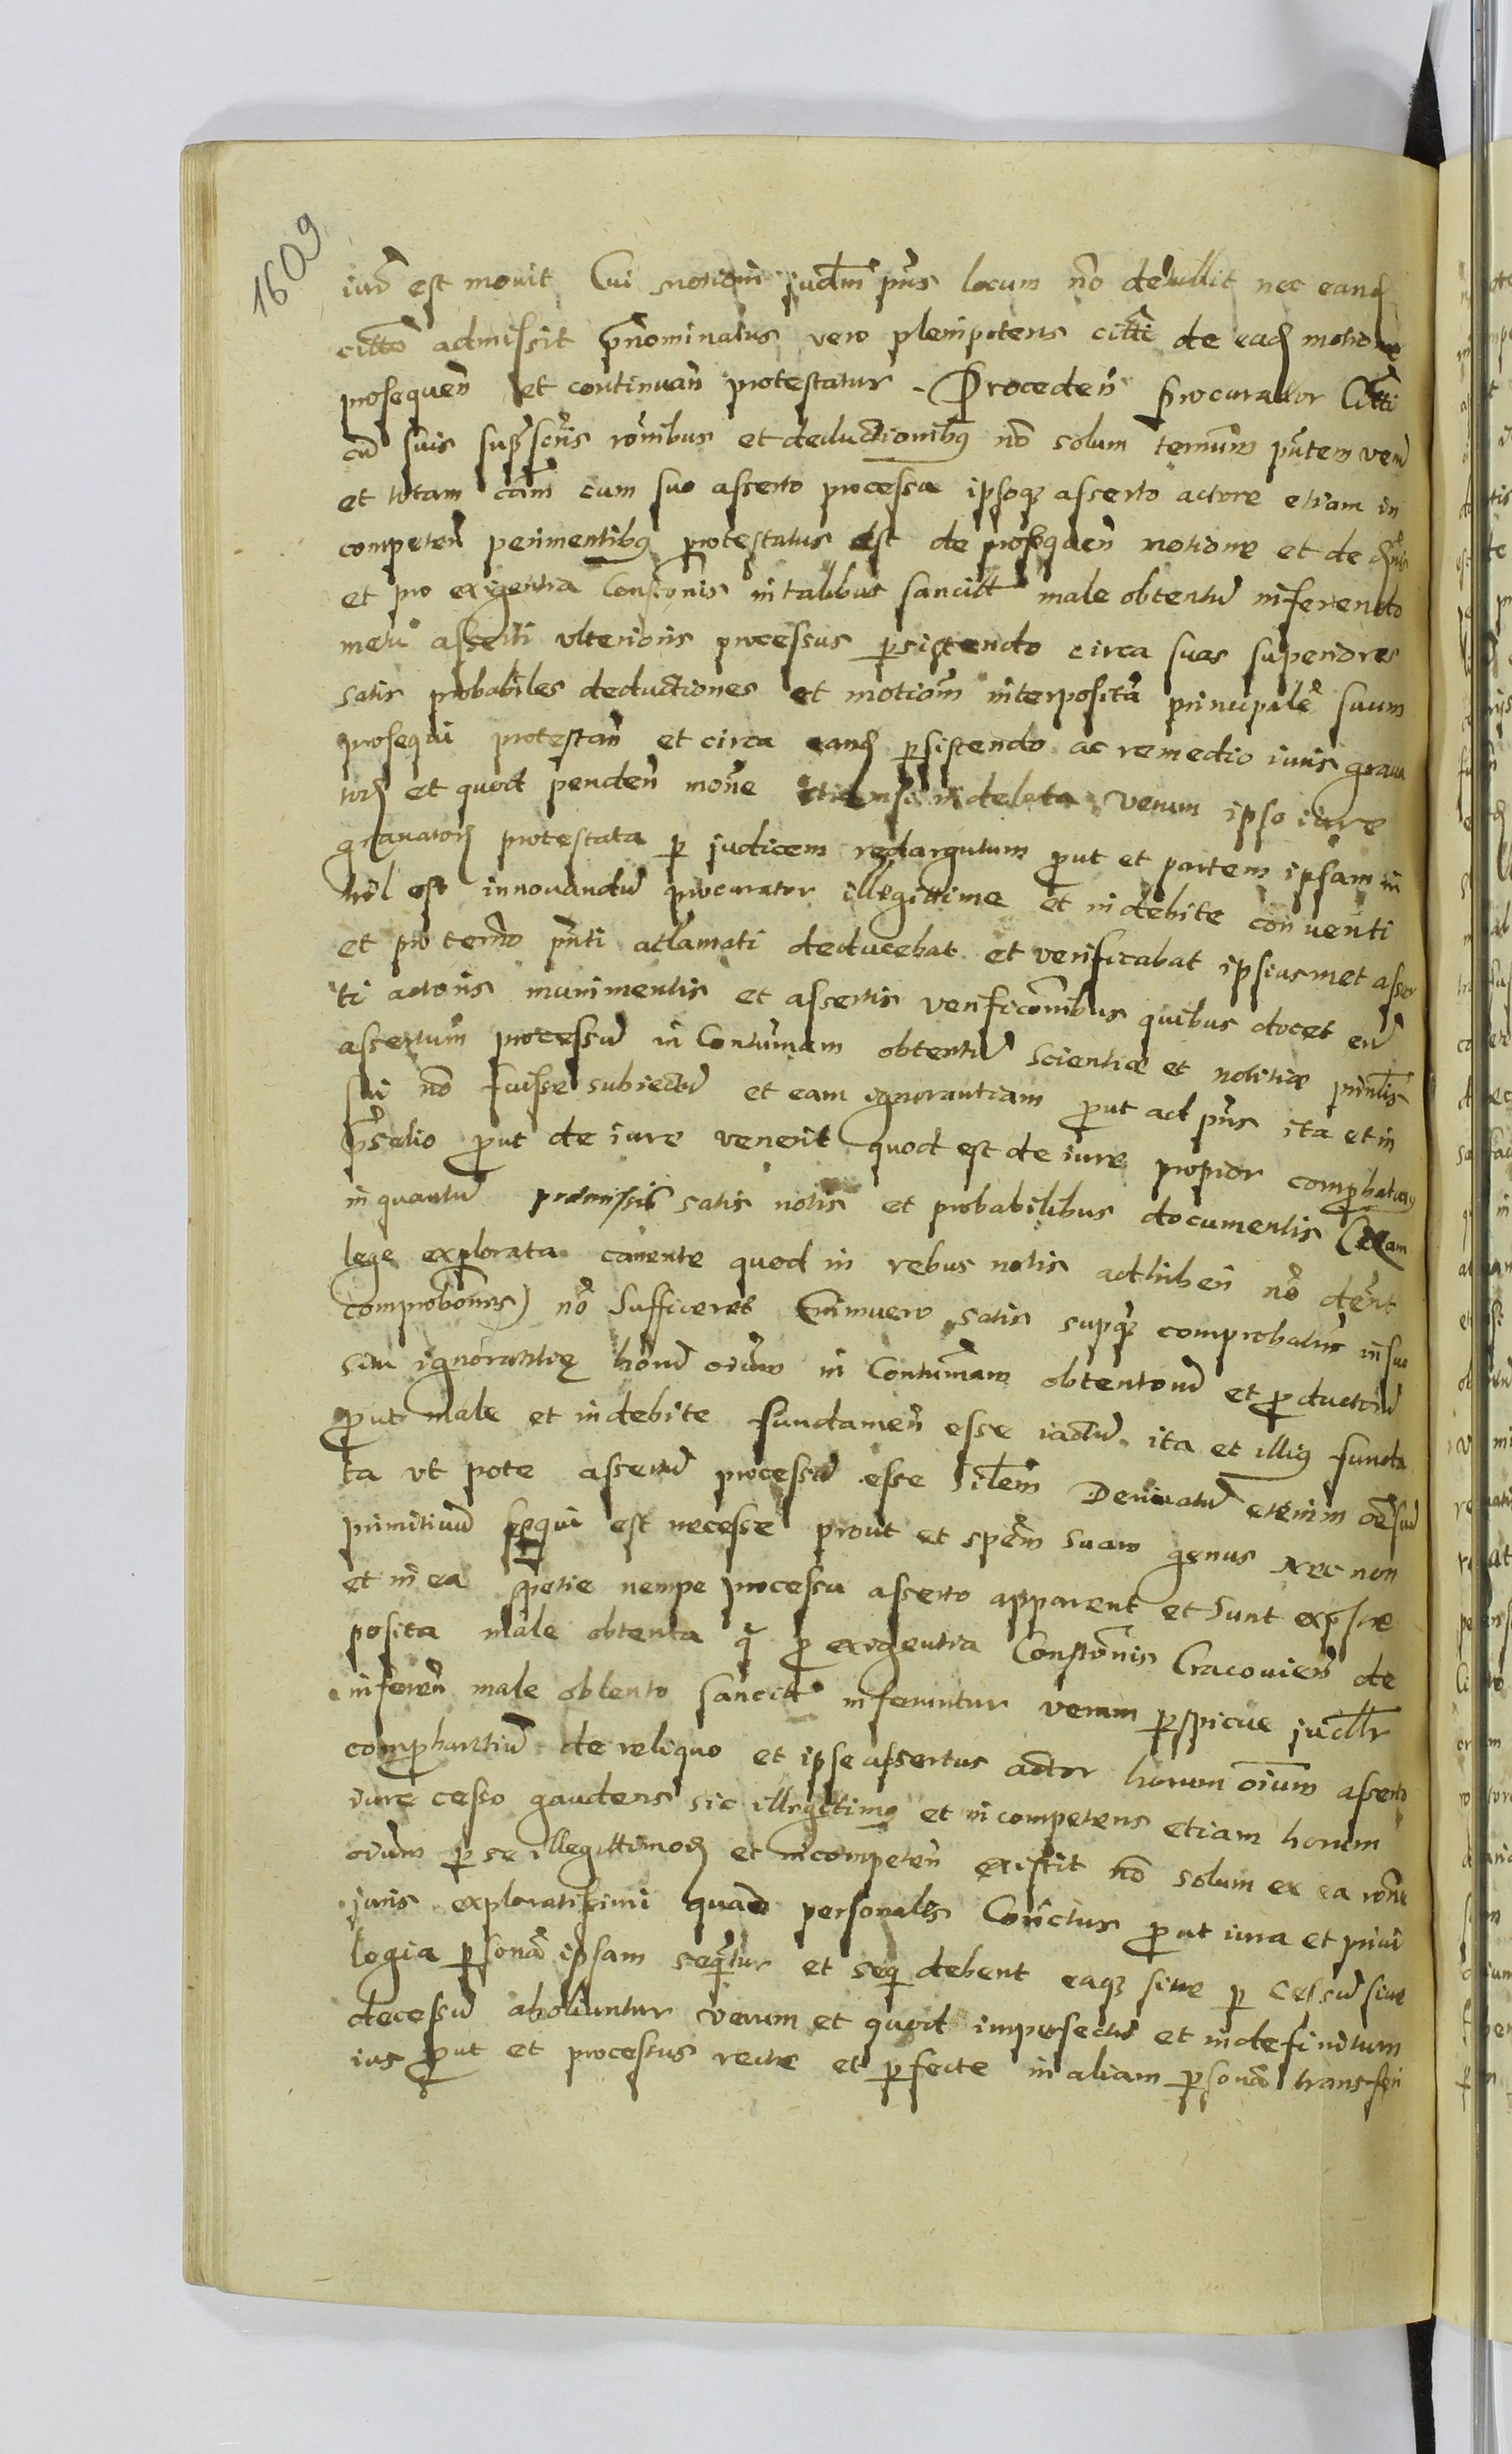 1609
iurē est mouit Cui motioni judm pns locum nō detullit nec eand
cittō admissit prnominatus vero plenipotens citti de ead motione
prosequen et continuan protestatur. Proceden Procurator Citti
cū suis suprascrtis rōnibus et deductionibus nō solum termum pntem verū
et totam cām cum suo asserto processu ipsoq asserto actore etiam in
competen perimentibus protestatus est de prosequen motione et de
et pro exigentia Constōnis in talibus sancitt male obtentū inferendo
metu asserti vlterioris processus psistendo circa suas superiores
satis probabiles deductiones et motiōm interpositā principalē suum
prosequi protestan et circa eand psistendo ac remedio iuris graua
tor et quod penden mōne verum ipso iure
grauator protestata p judicem redargutum prout et partem ipsam ni
hil est innouandū procurator illegittime et indebite conuenti
et pro termo pnti acclamati deducebat et verificabat ipsiusmet asser
ti actoris munimentis et assertis verificōnibus quibus docet eū
assertum processū in Contumam obtentū scientiæ et notitiæ prinlis
sui nō fuisse subiectū et eam ignorantiam prout ad pns ita et in
prout de iure venerit quod est de iure propior comprobaturus
in quantū præmissis satis notis et probabilibus documentis (
lege explorata cauente quod in rebus notis adhiberi nō dent
comprobōnes) nō sufficeret Enimuero satis supq comprobatur in suo
situ ignorantiæ horū oium in Contumam obtentorū et productorū
prout male et indebite fundamen esse iactū ita et illius funda
ta vt pote assertū processū esse silem Deriuatū etenim oē suū
primitiuū sequi est necesse prout et spēm suam genus Nec non
et in ea spetie nempe processu asserto apparent et sunt
posita male obtenta q pro exigentia Constōnis Cracouien de
inferen male obtento sancitt inferuntur verum pspicue judlr
comprobantiū de reliquo et ipse assertus actor horum oium asserto
iure cesso gaudens sic illegittimus et incompetens etiam horum
oium p se illegittimor et incompeten existit nō solum ex ea rōne
juris exploratissimi quare personalis Conictus prout iura et priui
legia psonā ipsam sequntur et sequi debent eaq siue p cessū siue
decessū aboliuntur verum et quod imperfectū et indefinitum
ius prout et processus recte et pfecte in aliam psonā transferi